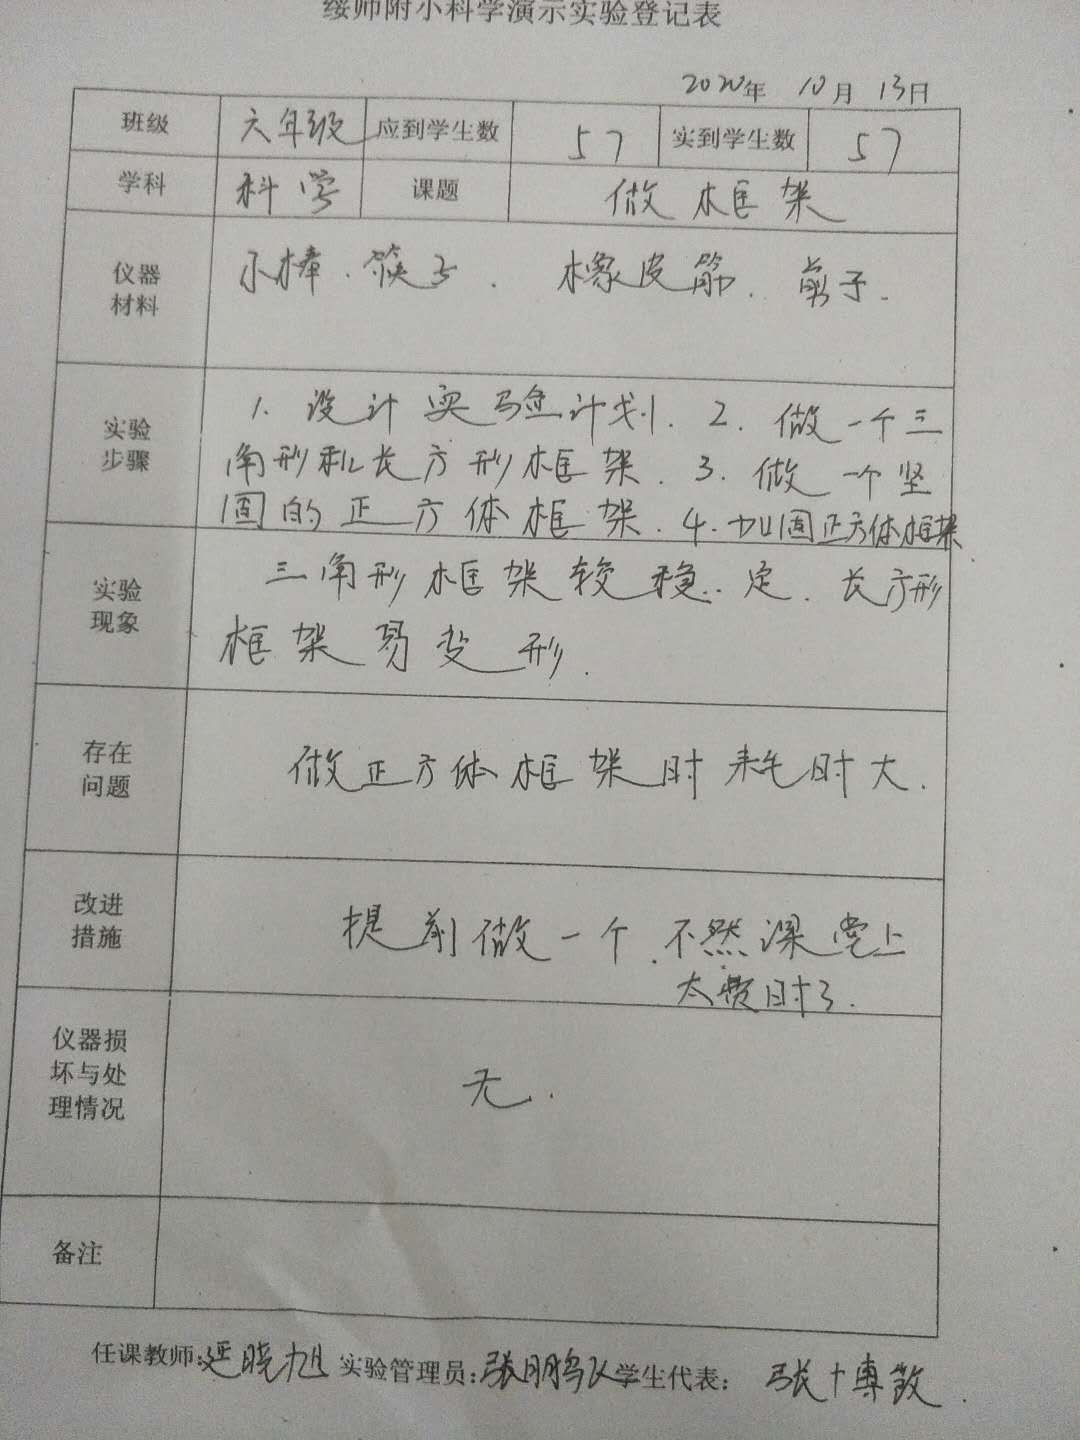 绥师附小科学演示实验登记表
2020年 10月 13日
班级 六年级 应到学生数 57 实到学生数 57
学科 科学 课题 做框架
仪器材料 小棒、筷子、橡皮筋、剪子.
实验步骤 1. 设计实验计划. 2. 做一个三
角形和长方形框架. 3. 做一个坚
固的正方体框架. 4. 加固正方体框架
实验现象 三角形框架较稳定. 长方形
框架易变形.
存在问题 做正方体框架时耗时大.
改进措施 提前做一个.不然课堂上
太费时了.
仪器损坏与处理情况 无.
备注
任课教师:延晓旭 实验管理员:张鹏飞 学生代表: 张博敦